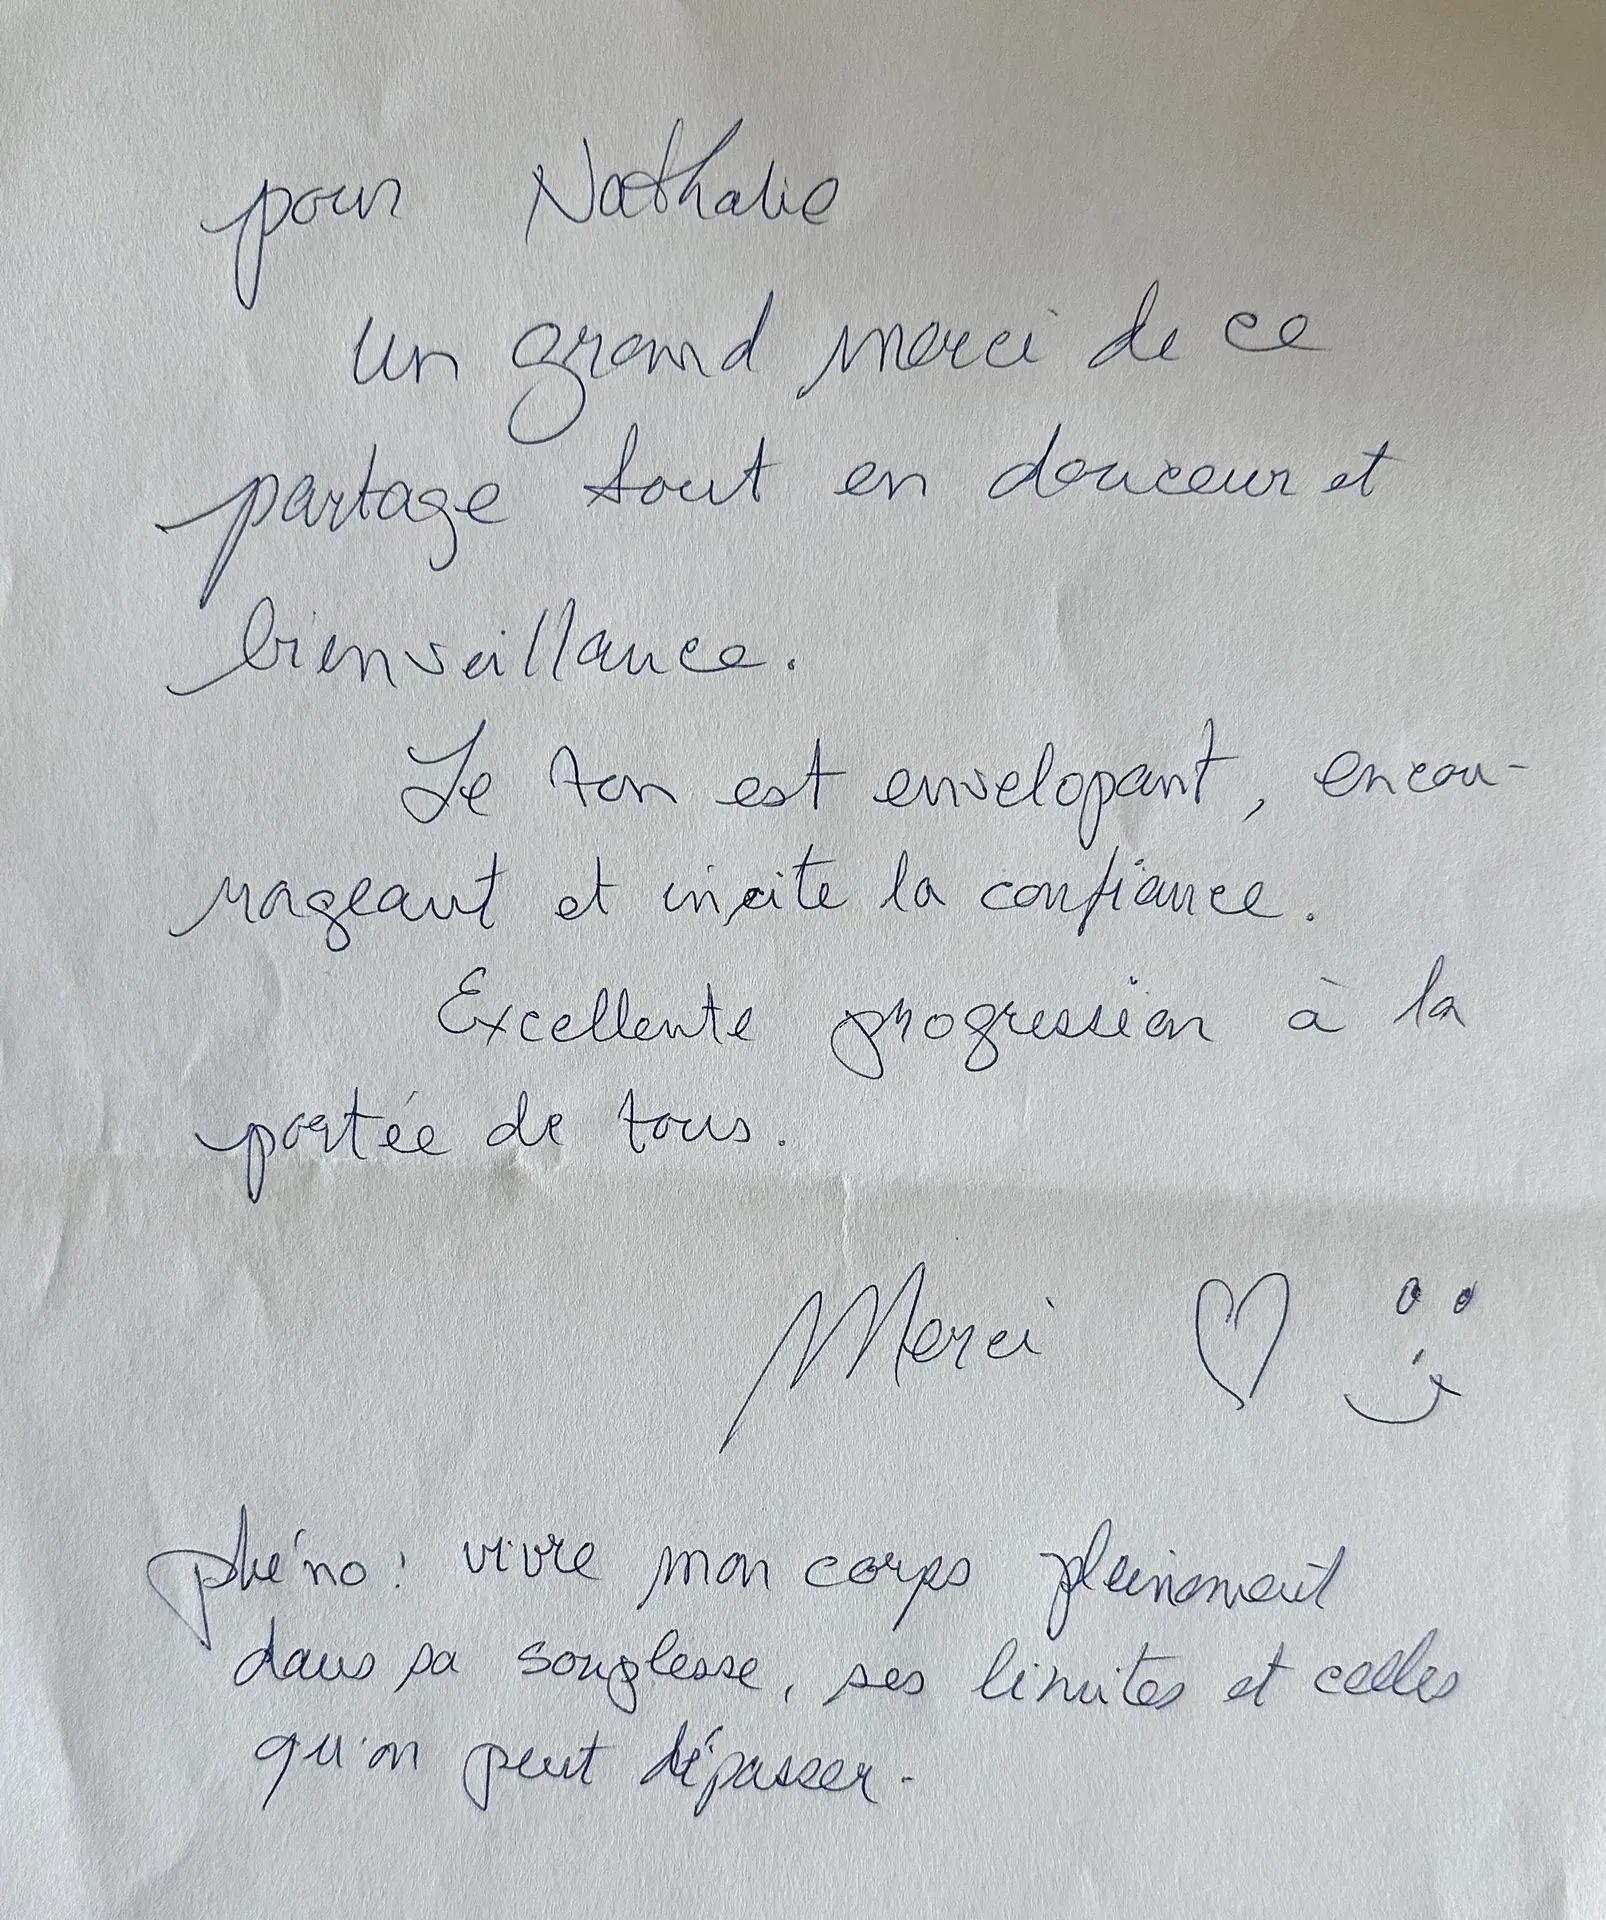 pour Nathalie
un grand merci de ce
partage tout en douceur et
bienveillance.
Le ton est envelopant, encou-
rageant et incite la confiance.
Excellente progression à la
portée de tous.
Merci ♡
phéno: vivre mon corps pleinement
dans sa souplesse, ses limites et celles
qu'on peut dépasser.